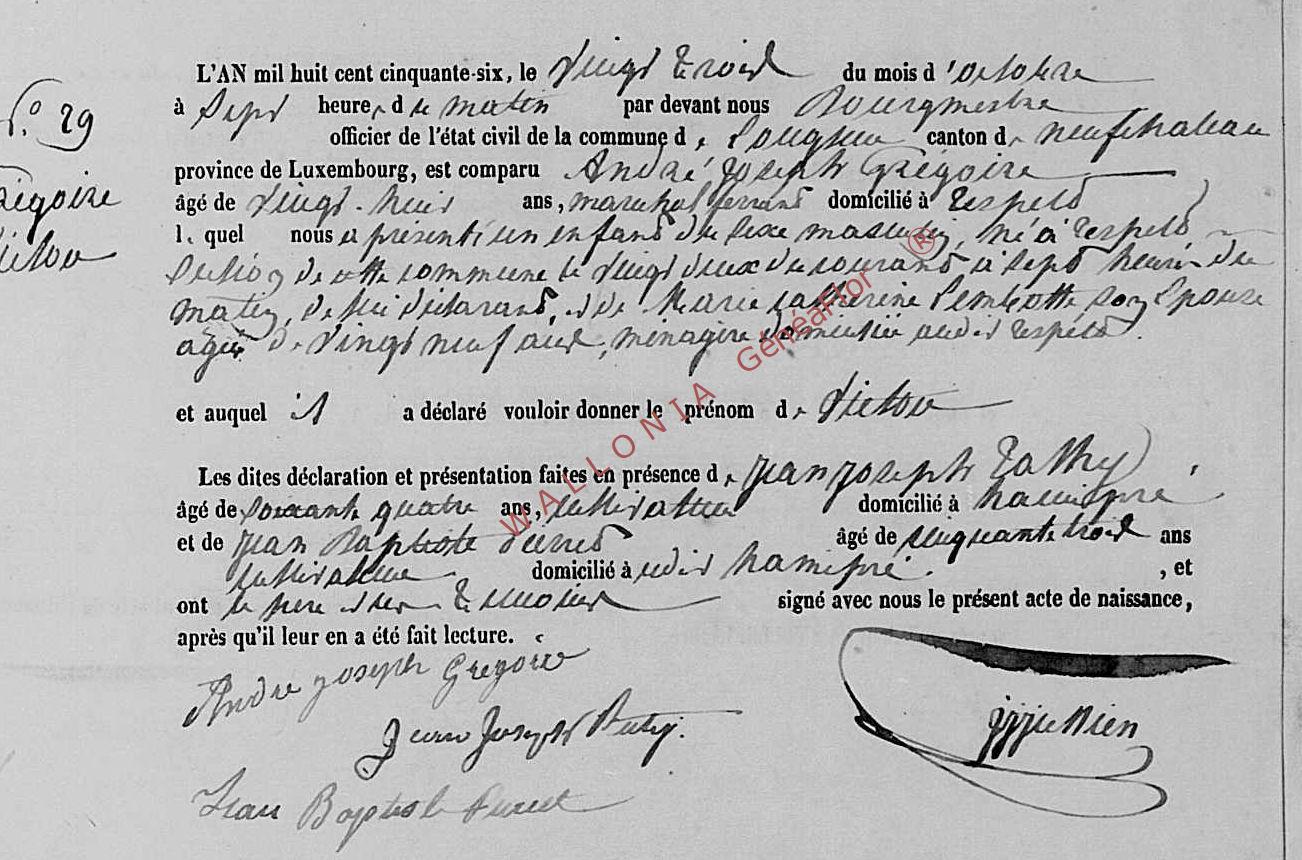 L'AN mil huit cent cinquante-six, le vingt trois du mois d'octobre
N.o 29
à sept heures d u matin par devant nous Bourgmestre
officier de l'état civil de la commune de Longlier canton de neufchateau
province de Luxembourg, est comparu André Joseph Grégoire
Grégoire
âgé de vingt-huit ans, marechal ferrant domicilié à Respelt
Victor
lequel nous a présenté un enfant du sexe masculin, né à Respelt
section de cette commune le vingt deux du courant à sept heures du
matin, de lui déclarant, et de Marie Catherine son Epouse
agée de vingt neuf ans, ménagère domiciliée audit Respelt.
et auquel il a déclaré vouloir donner le prénom de Victor
Les dites déclaration et présentation faites en présence de Jean Joseph
âgé de soixante quatre ans, cultivateur domicilié à hamipré
et de Jean Baptiste âgé de cinquante trois ans
cultivateur domicilié à udit hamipré. , et
ont le père et les témoins signé avec nous le présent acte de naissance,
après qu'il leur en a été fait lecture.
Andre joseph Gregoire
Jean Joseph
Jean Baptiste
WALLONIA GénéaFlor ®